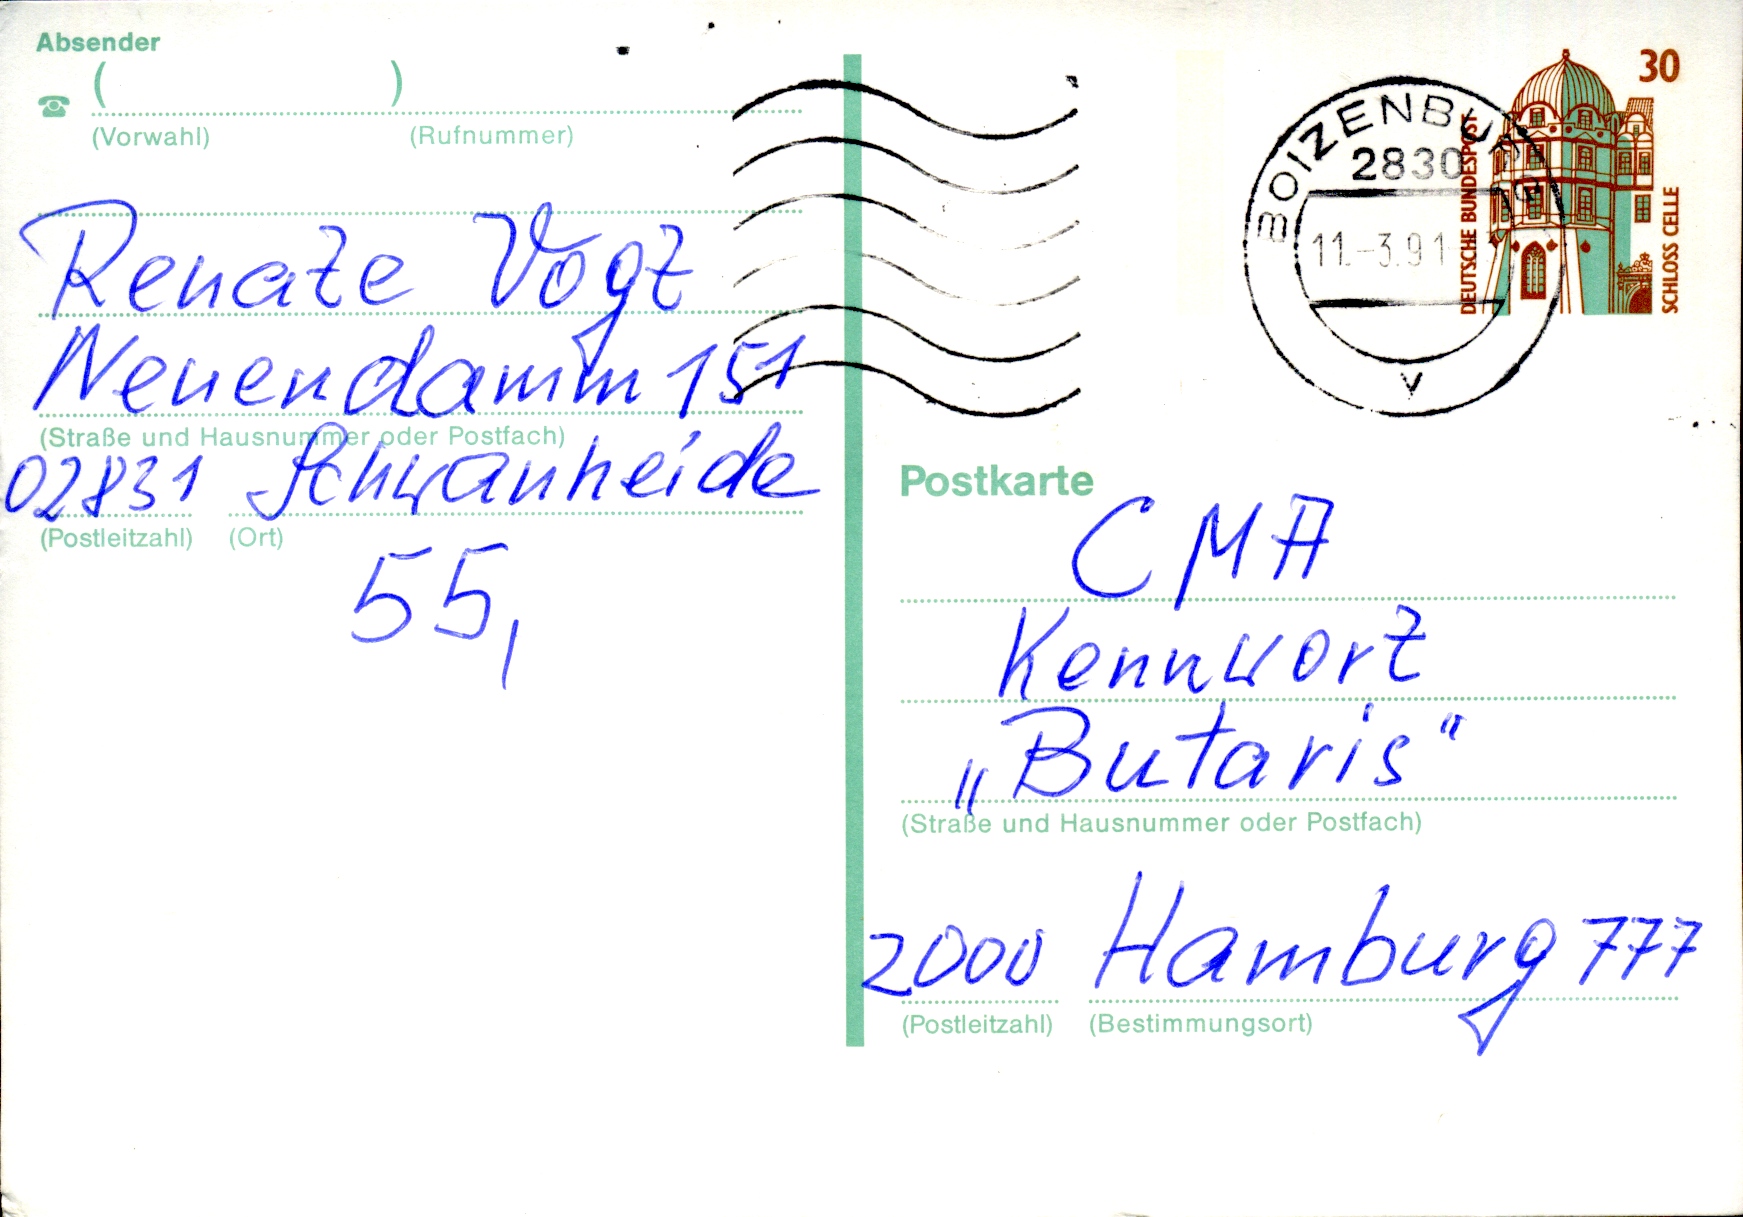 Absender
( )
(Vorwahl) (Rufnummer)
Renate Vogt
Neuendamm 151
(Straße und Hausnummer oder Postfach)
02831 Schwanheide
(Postleitzahl) (Ort)
55,
30
DEUTSCHE BUNDESPOST
SCHLOSS CELLE
BOIZENBURG
2830
11.-3.91
v
Postkarte
CMA
Kennwort
„Butaris“
(Straße und Hausnummer oder Postfach)
2000 Hamburg 777
(Postleitzahl) (Bestimmungsort)